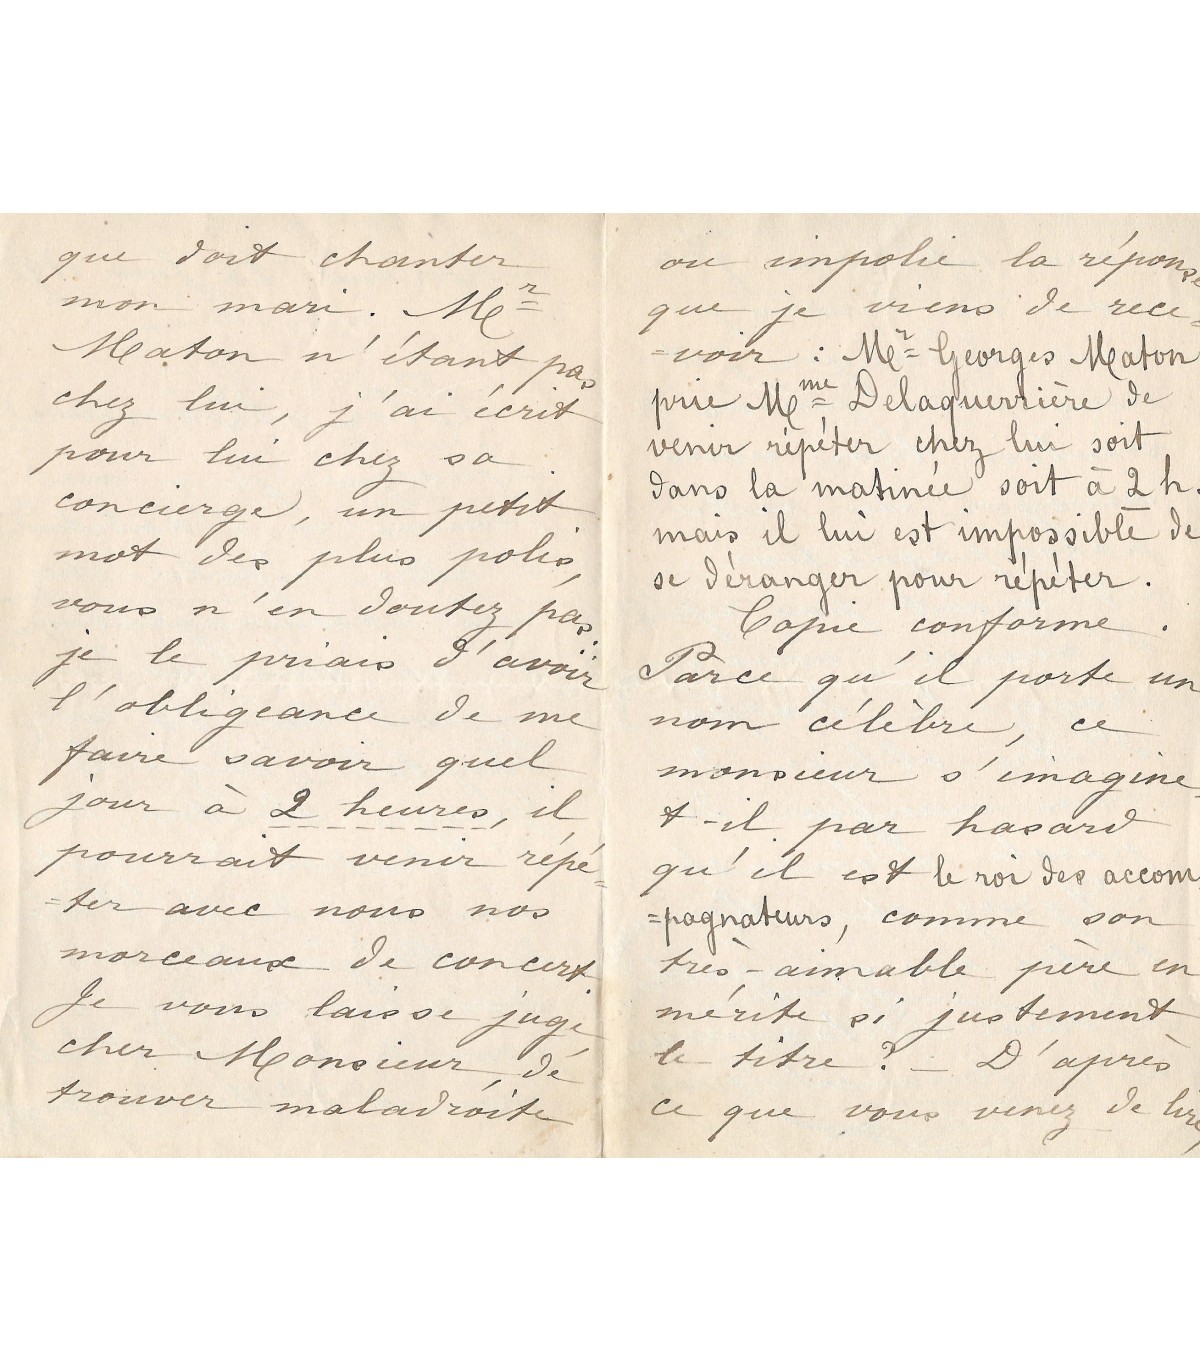 que doit chanter
mon mari. Mr
Maton n'étant pas
chez lui, j'ai écrit
pour lui chez sa
concierge, un petit
mot des plus polis,
vous n'en doutez pas.
je le priais d'avoir
l'obligeance de me
faire savoir quel
jour à 2 heures, il
pourrait venir répé-
-ter avec nous nos
morceaux de concert.
Je vous laisse juge
cher Monsieur, de
trouver maladroite
ou impolie la réponse
que je viens de rece-
-voir : Mr Georges Maton
prie Mme Delaquerrière de
venir répéter chez lui soit
dans la matinée soit à 2 h.
mais il lui est impossible de
se déranger pour répéter.
Copie conforme.
Parce qu'il porte un
nom célèbre, ce
monsieur s'imagine-
t-il par hasard
qu'il est le roi des accom
=pagnateurs, comme son
très-aimable père en
mérite si justement
le titre ? — D'après
ce que vous venez de lire,